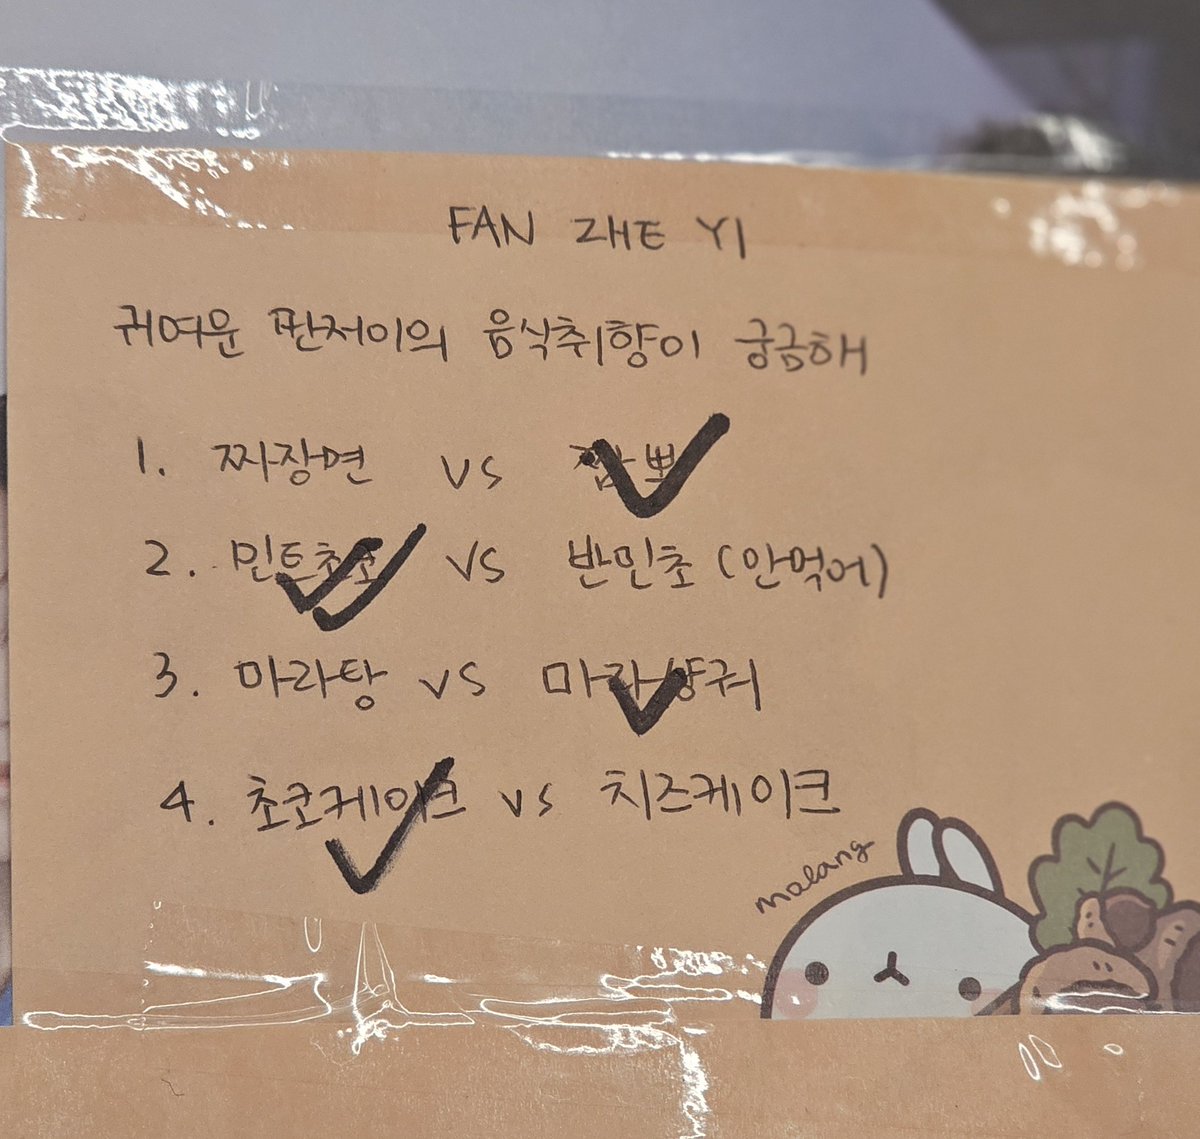 FAN ZHE YI
귀여운 판저이의 음식취향이 궁금해
1. 짜장면 vs 짬뽀
2. 민트초코 vs 반민초 (안먹어)
3. 마라탕 vs 마라샹궈
4. 초코케이크 vs 치즈케이크
molang